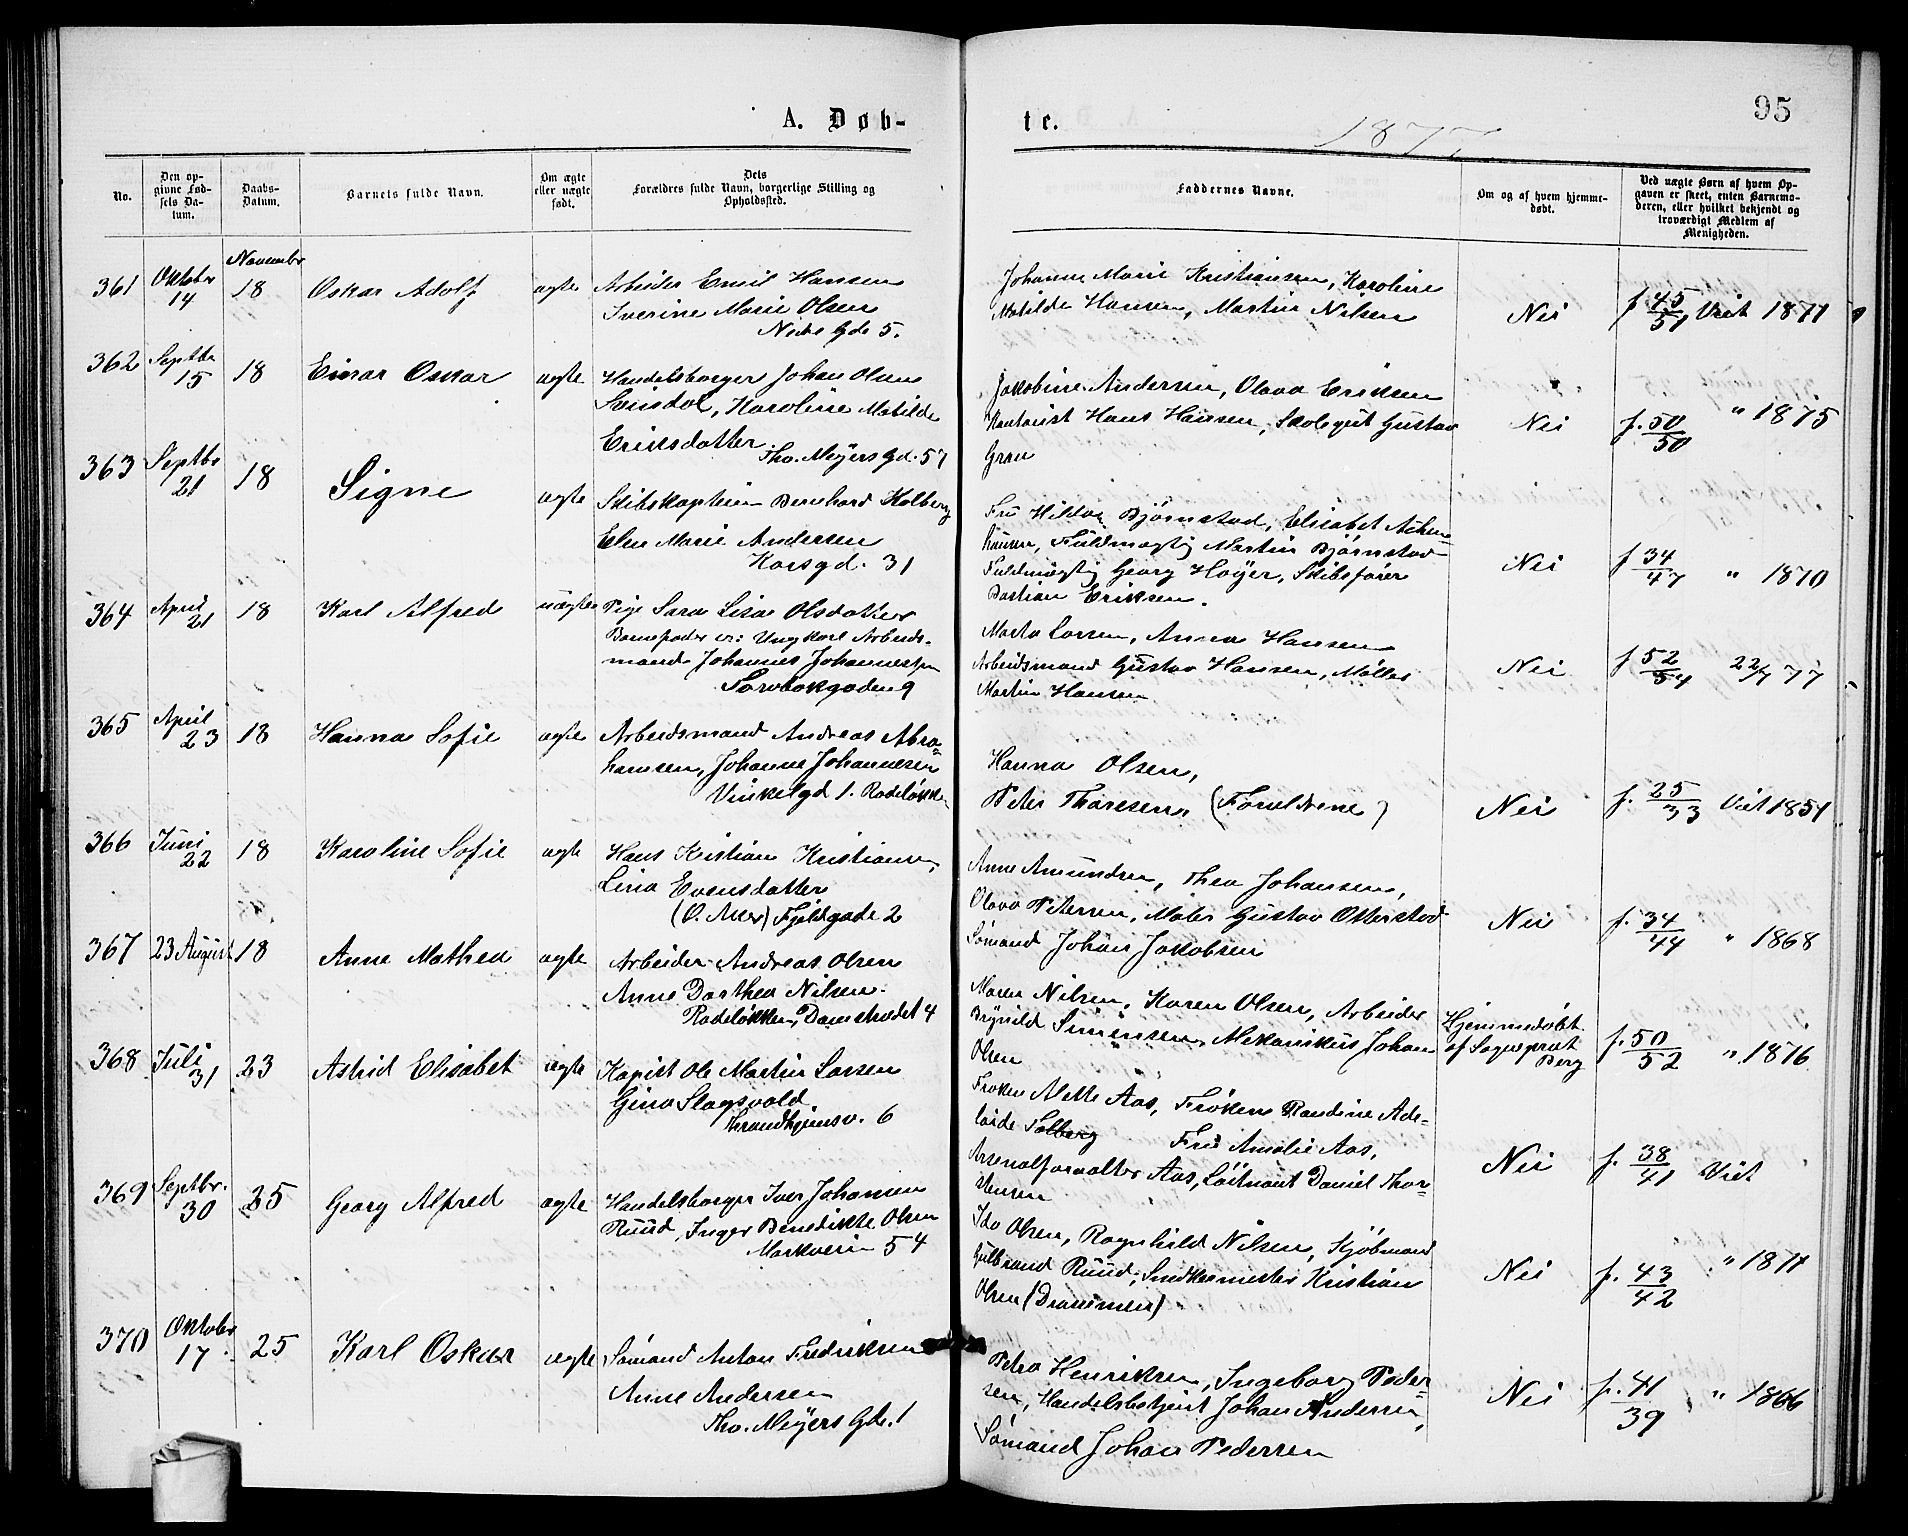 A. Døb-
te.
1877.
95
No.
Den op-
givne Fød-
sels Da-
tum.
Daabs-
Datum.
Barnets fulde Navn.
Om ægte
eller uægte
født.
Dets
Forældres fulde Navn, borgerlige Stilling og
Opholdssted.
Faddernes Navne.
Om og af hvem hjemme-
døbt.
Ved uægte Børn af hvem Op-
gaven er skeet, enten Barnemo-
deren, eller hvilket bekjendt og
troværdigt Medlem af
Menigheden.
361 Oktober 14 November 18 Oskar Adolf ægte Arbeider Emil Hansen
Iverine Marie Olsen
Nedre Gde 5.
Johanne Marie Kristiansen, Karoline
Matilde Hansen, Martin Nilsen
Nei
f 45/51 Viet 1871
362 Septbr 15 18 Einar Oskar ægte Handelsborger Johan Olsen
Svensdol, Karoline Matilde
Eriksdatter
Tho. Meyers Gd. 57
Jakobine Andersen, Olava Eriksen
Kontorist Hans Hansen, Skolegut Gustav
Gran
Nei
f. 50/50 " 1875
363 Septbr 21 18 Signe ægte Skibskaptein Bernhard Kolberg
Elen Marie Andersen
Korsgd. 31
Fru Hilda Bjørnstad, Elisabet Achen-
hausen, Fuldmægtig Martin Bjørnstad
Fuldmægtig Georg Høyer, Skibsfører
Bastian Eriksen.
Nei
f 34/47 " 1870
364 April 21 18 Karl Alfred uægte Pige Sara Lisa Olsdatter
Barnefader er: Ungkarl Arbeids-
mand Johannes Johannesen
Tarvbakgaden 9
Marta Larsen, Anna Hansen
Arbeidsmand Gustav Hansen, Møller
Martin Hansen
Nei
f 52/54 22/7 77
365 April 23 18 Hanna Sofie ægte Arbeidsmand Andreas Abra-
hamsen, Johanne Johannesen
Vinkelgd 1. Rodeløkken
Hanna Olsen,
Peter Thoresen, (Forældrene)
Nei
f. 25/33 Viet 1851
366 Juni 22 18 Karoline Sofie ægte Hans Kristian Kristiansen,
Lina Evensdatter
(Ø. Aker) Fjeldgade 2
Anne Amundsen, Thea Johansen,
Olava Petersen, Maler Gustav Otterstad
Sømand Johan Jakobsen
Nei
f. 34/44 " 1868
367 23 August 18 Anne Mathea ægte Arbeider Andreas Olsen
Anne Dorthea Nilsen.
Rodeløkken, Damstrædet 4
Maren Nilsen, Karen Olsen, Arbeider
Brynild Simensen, Mekanikus Johan
Olsen
Hjemmedøbt
af Sognepræst
Berg
f. 50/52 " 1876
368 Juli 31 23 Astrid Elisabet ægte Kopist Ole Martin Larsen
Gina Slagsvold
Throndhjemsv. 6
Frøken Mette Aas, Frøken Randine Ade-
laide Solberg Fru Amalie Aas,
Arsenalforvalter Aas, Løitnant Daniel Thor-
stensen
Nei
f. 38/41 Viet
369 Septbr. 30 25 Georg Alfred ægte Handelsborger Iver Johansen
Ruud, Inger Benedikte Olsen
Markveien 54
Ida Olsen, Ragnhild Nilsen, Kjøbmand
Gulbrand Ruud, Snedkermester Kristian
Olsen (Drammen)
Nei
f. 43/42 " 1871
370 Oktober 17 25 Karl Oskar ægte Sømand Anton Fredriksen
Anne Andersen
Tho. Meyers Gd. 1
Petra Henriksen, Ingeborg Peder-
sen, Handelsbetjent Johan Andersen,
Sømand Johan Pedersen
Nei
f. 41/39 " 1866